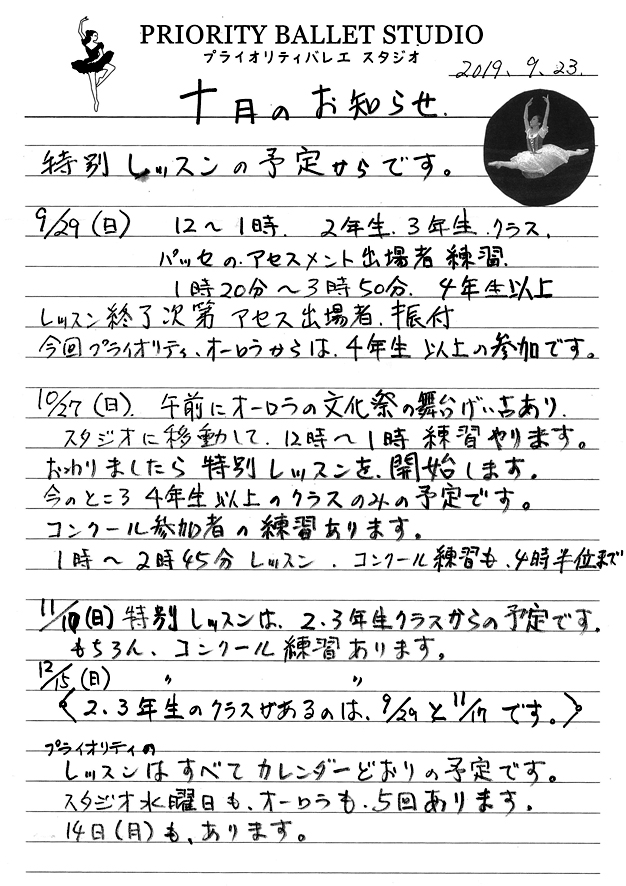 PRIORITY BALLET STUDIO
プライオリティバレエ スタジオ
2019. 9. 23.
十月のお知らせ.
特別レッスンの予定からです。
9/29(日) 12〜1時. 2年生.3年生.クラス.
パッセの.アセスメント出場者練習.
1時20分〜3時50分. 4年生以上
レッスン終了次第 アセス出場者.振付
今回プライオリティ、オーロラからは.4年生以上の参加です。
10/27(日). 午前にオーロラの文化祭の舞台げい古あり.
スタジオに移動して.12時〜1時 練習やります。
おわりましたら特別レッスンを.開始します.
今のところ4年生以上のクラスのみの予定です。
コンクール参加者の練習あります。
1時〜2時45分 レッスン. コンクール練習も.4時半位まで
11/10(日)特別レッスンは、2.3年生クラスからの予定です.
もちろん、コンクール練習あります。
12/15(日) 〃 〃
〈2.3年生のクラスがあるのは、9/29と11/17です。〉
プライオリティの
レッスンはすべてカレンダーどおりの予定です。
スタジオ水曜日も、オーロラも.5回あります.
14日(月)も、あります。